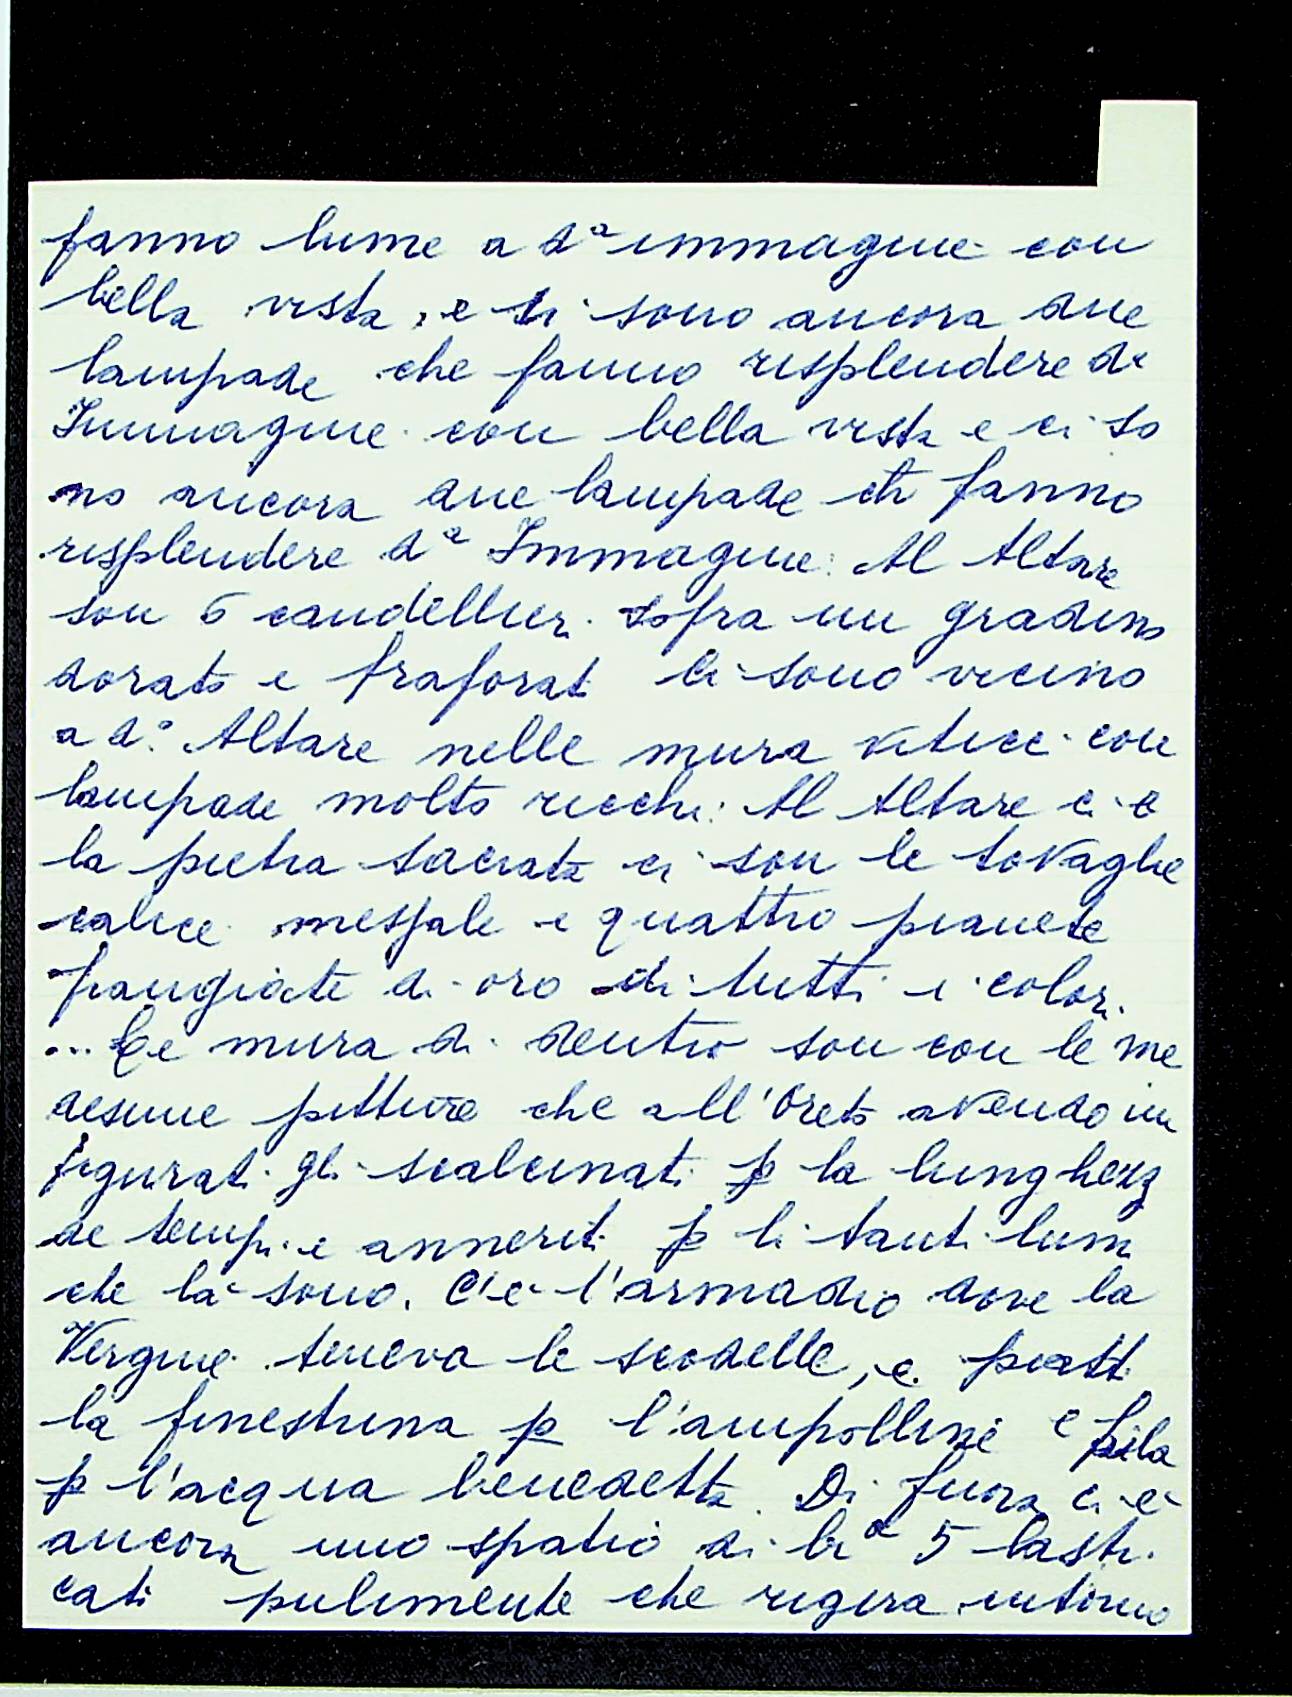 fanno lume a dª immagine con
bella vista, e li sono ancora due
lampade che fanno risplendere dª
Immagine con bella vista e ci so
no ancora due lampade ch fanno
risplendere dª Immagine. Al Altare
son 6 candellieri sopra un gradino
dorato e traforat li sono vicino
a d.º Altare nelle mura vitici con
lampade molto ricchi. Al Altare ci è
la pietra sacrata ci son le tovaglie
calice messale e quattro pianete
frangiate di oro di tutti i colori.
... Le mura di dentro son con le me
desime pitture che all'Oreto avendo in
figurati gli scalcinati p la lunghezz
de tempi e anneriti p li tanti lumi
che là sono. C'è l'armadio dove la
Vergine teneva le scodelle, e piatti
la finestrina p l'ampolline e pila
p l'acqua benedetta. Di fuora ci è
ancora uno spatio di brª 5 lastri
cati pulimente che rigira intorno